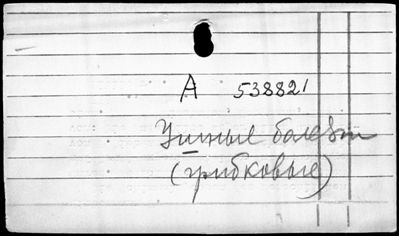 А 538821
Ушные болезни
(грибковые)